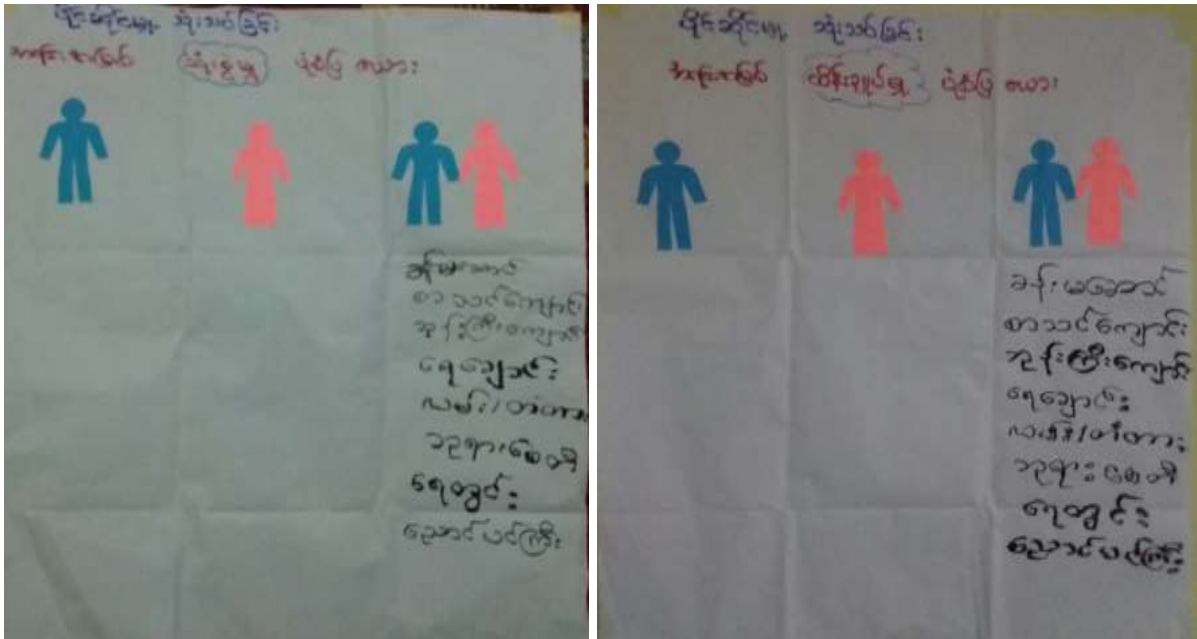 ပိုင်ဆိုင်မှု သုံးသပ်ခြင်း
သုံးစွဲမှု ပုံစံပြ ဇယား
စာသင်ကျောင်း
ဘုန်းကြီးကျောင်း
ရေချောင်း
လမ်း/တံတား
ဘုရားစေတီ
ရေတွင်း
ညောင်ပင်ကြီး
ပိုင်ဆိုင်မှု သုံးသပ်ခြင်း
ထိန်းချုပ်မှု ပုံစံပြ ဇယား
စာသင်ကျောင်း
ဘုန်းကြီးကျောင်း
ရေချောင်း
လမ်း/တံတား
ဘုရားစေတီ
ရေတွင်း
ညောင်ပင်ကြီး